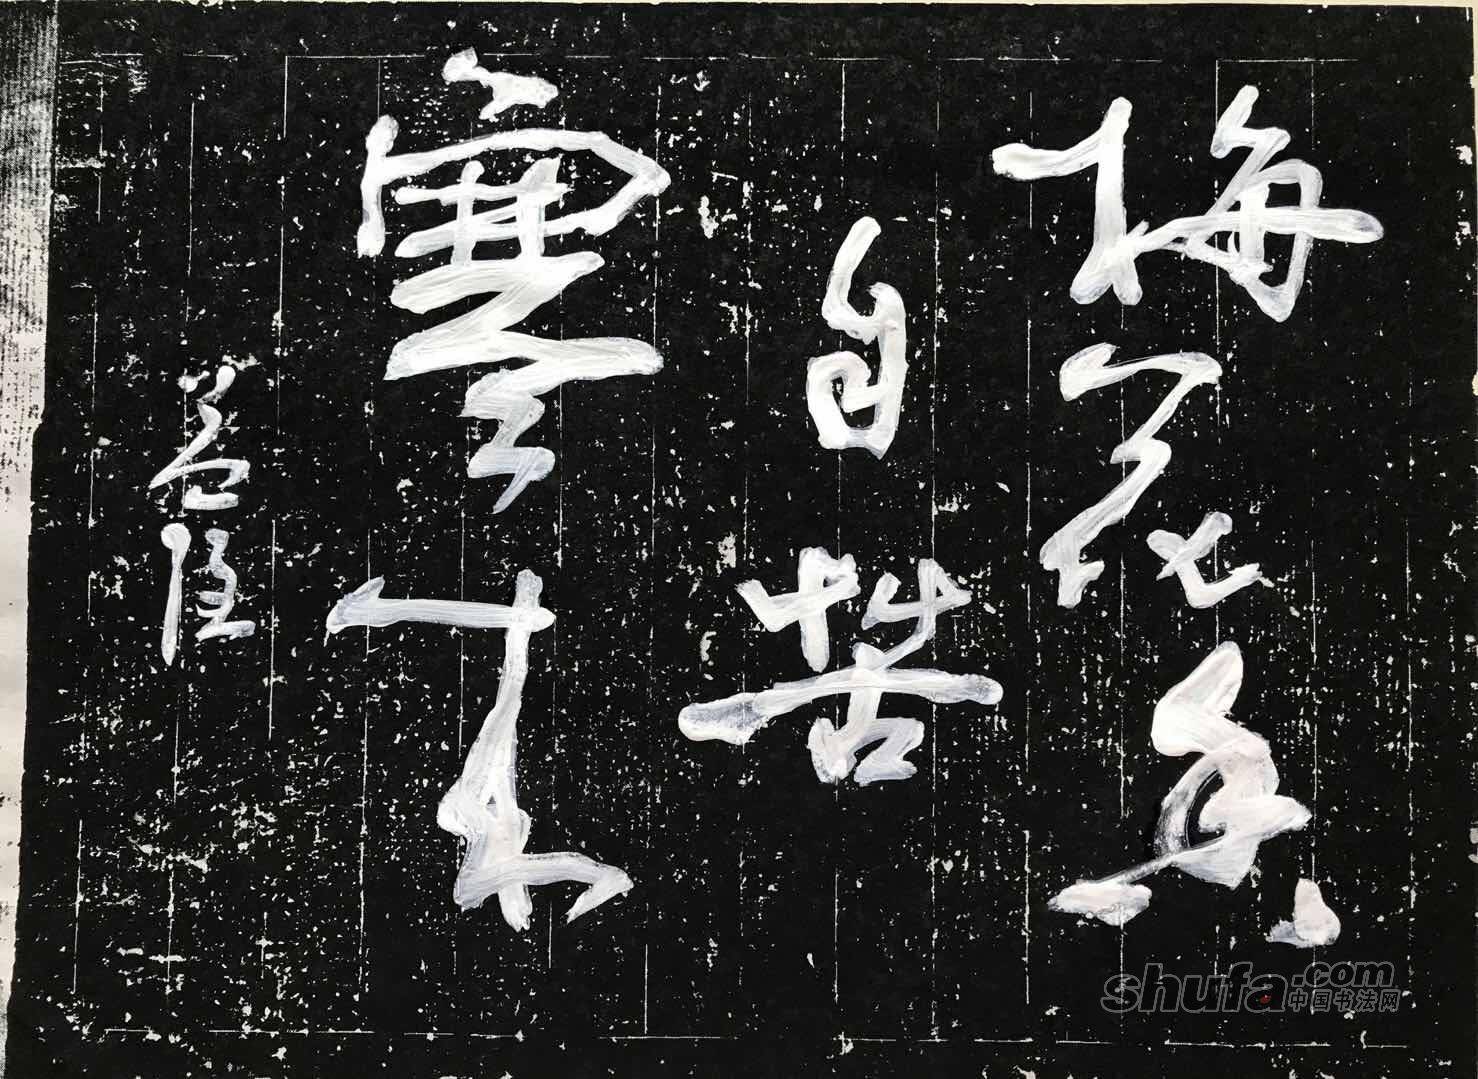 梅花香
自苦
寒来
shufa.com
中国书法网